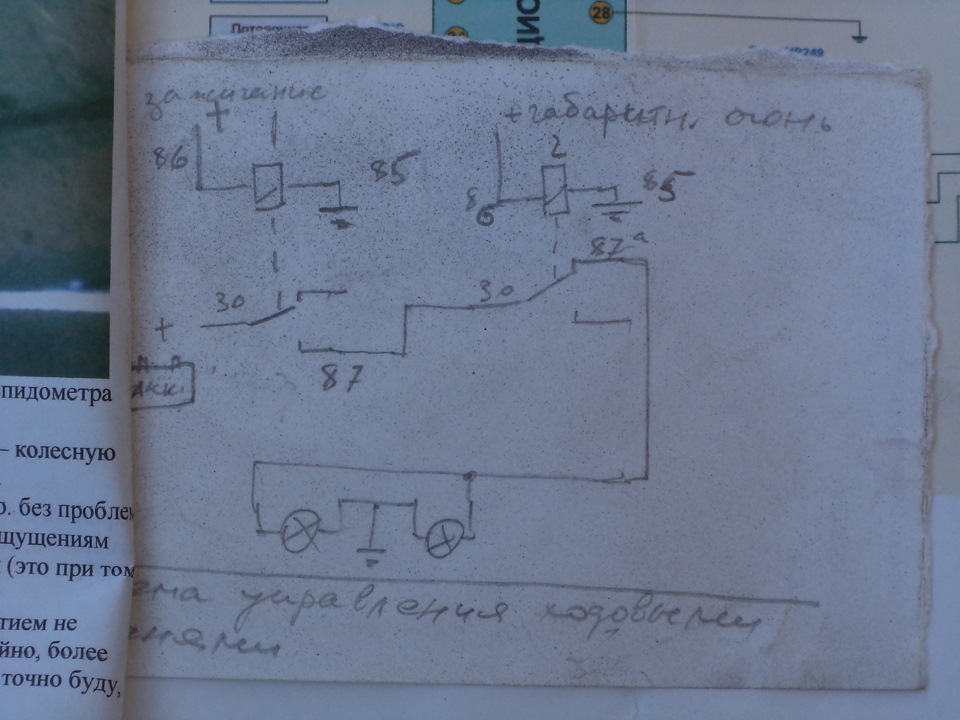 28
зажигание
+
+габаритн. огонь
2
86
85
86
85
87а
30
30
+
87
АКК.
управления ходовыми
пидометра
– колесную
о. без пробле
щущениям
(это при том
тием не
йно, более
точно буду,